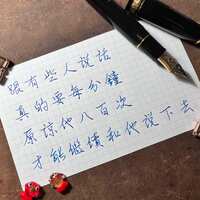 跟有些人说话
真的要每分鐘
原諒他八百次
才能繼續和他说下去